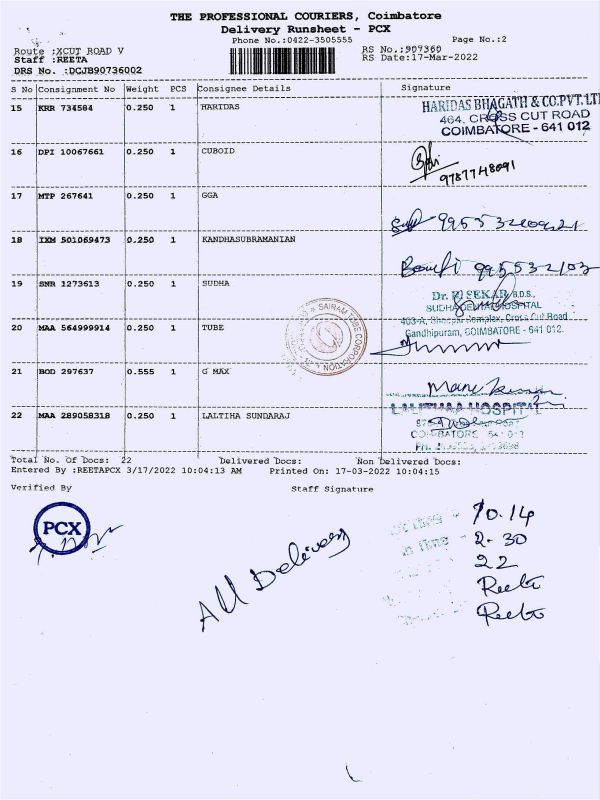 THE PROFESSIONAL COURIERS, Coimbatore
Delivery Runsheet - PCX
Phone No.:0422-3505555 Page No.:2
Route :XCUT ROAD V RS No.:907360
Staff :REETA RS Date:17-Mar-2022
DRS No. :DCJB90736002
S No Consignment No Weight PCS Consignee Details Signature
15 KRR 734584 0.250 1 HARIDAS
HARIDAS BHAGATH & CO.PVT.LT
464, CROSS CUT ROAD
COIMBATORE - 641 012
16 DPI 10067661 0.250 1 CUBOID
9787748091
17 MTP 267641 0.250 1 GGA
18 IXM 501069473 0.250 1 KANDHASUBRAMANIAN
19 SMR 1273613 0.250 1 SUDHA
SUDHA DENTAL HOSPITAL
Gandhipuram, COIMBATORE - 641 012.
20 MAA 564999914 0.250 1 TUBE
SAIRAM TUBE CORPORATION
21 BOD 297637 0.555 1 G MAX
22 MAA 289058318 0.250 1 LALTIHA SUNDARAJ
LALITHAA HOSPITAL
COIMBATORE
Total No. Of Docs: 22 Delivered Docs: Non Delivered Docs:
Entered By :REETAPCX 3/17/2022 10:04:13 AM Printed On: 17-03-2022 10:04:15
Verified By Staff Signature
PCX
All Delivery
10.14
2.30
22
Reeta
Reeta